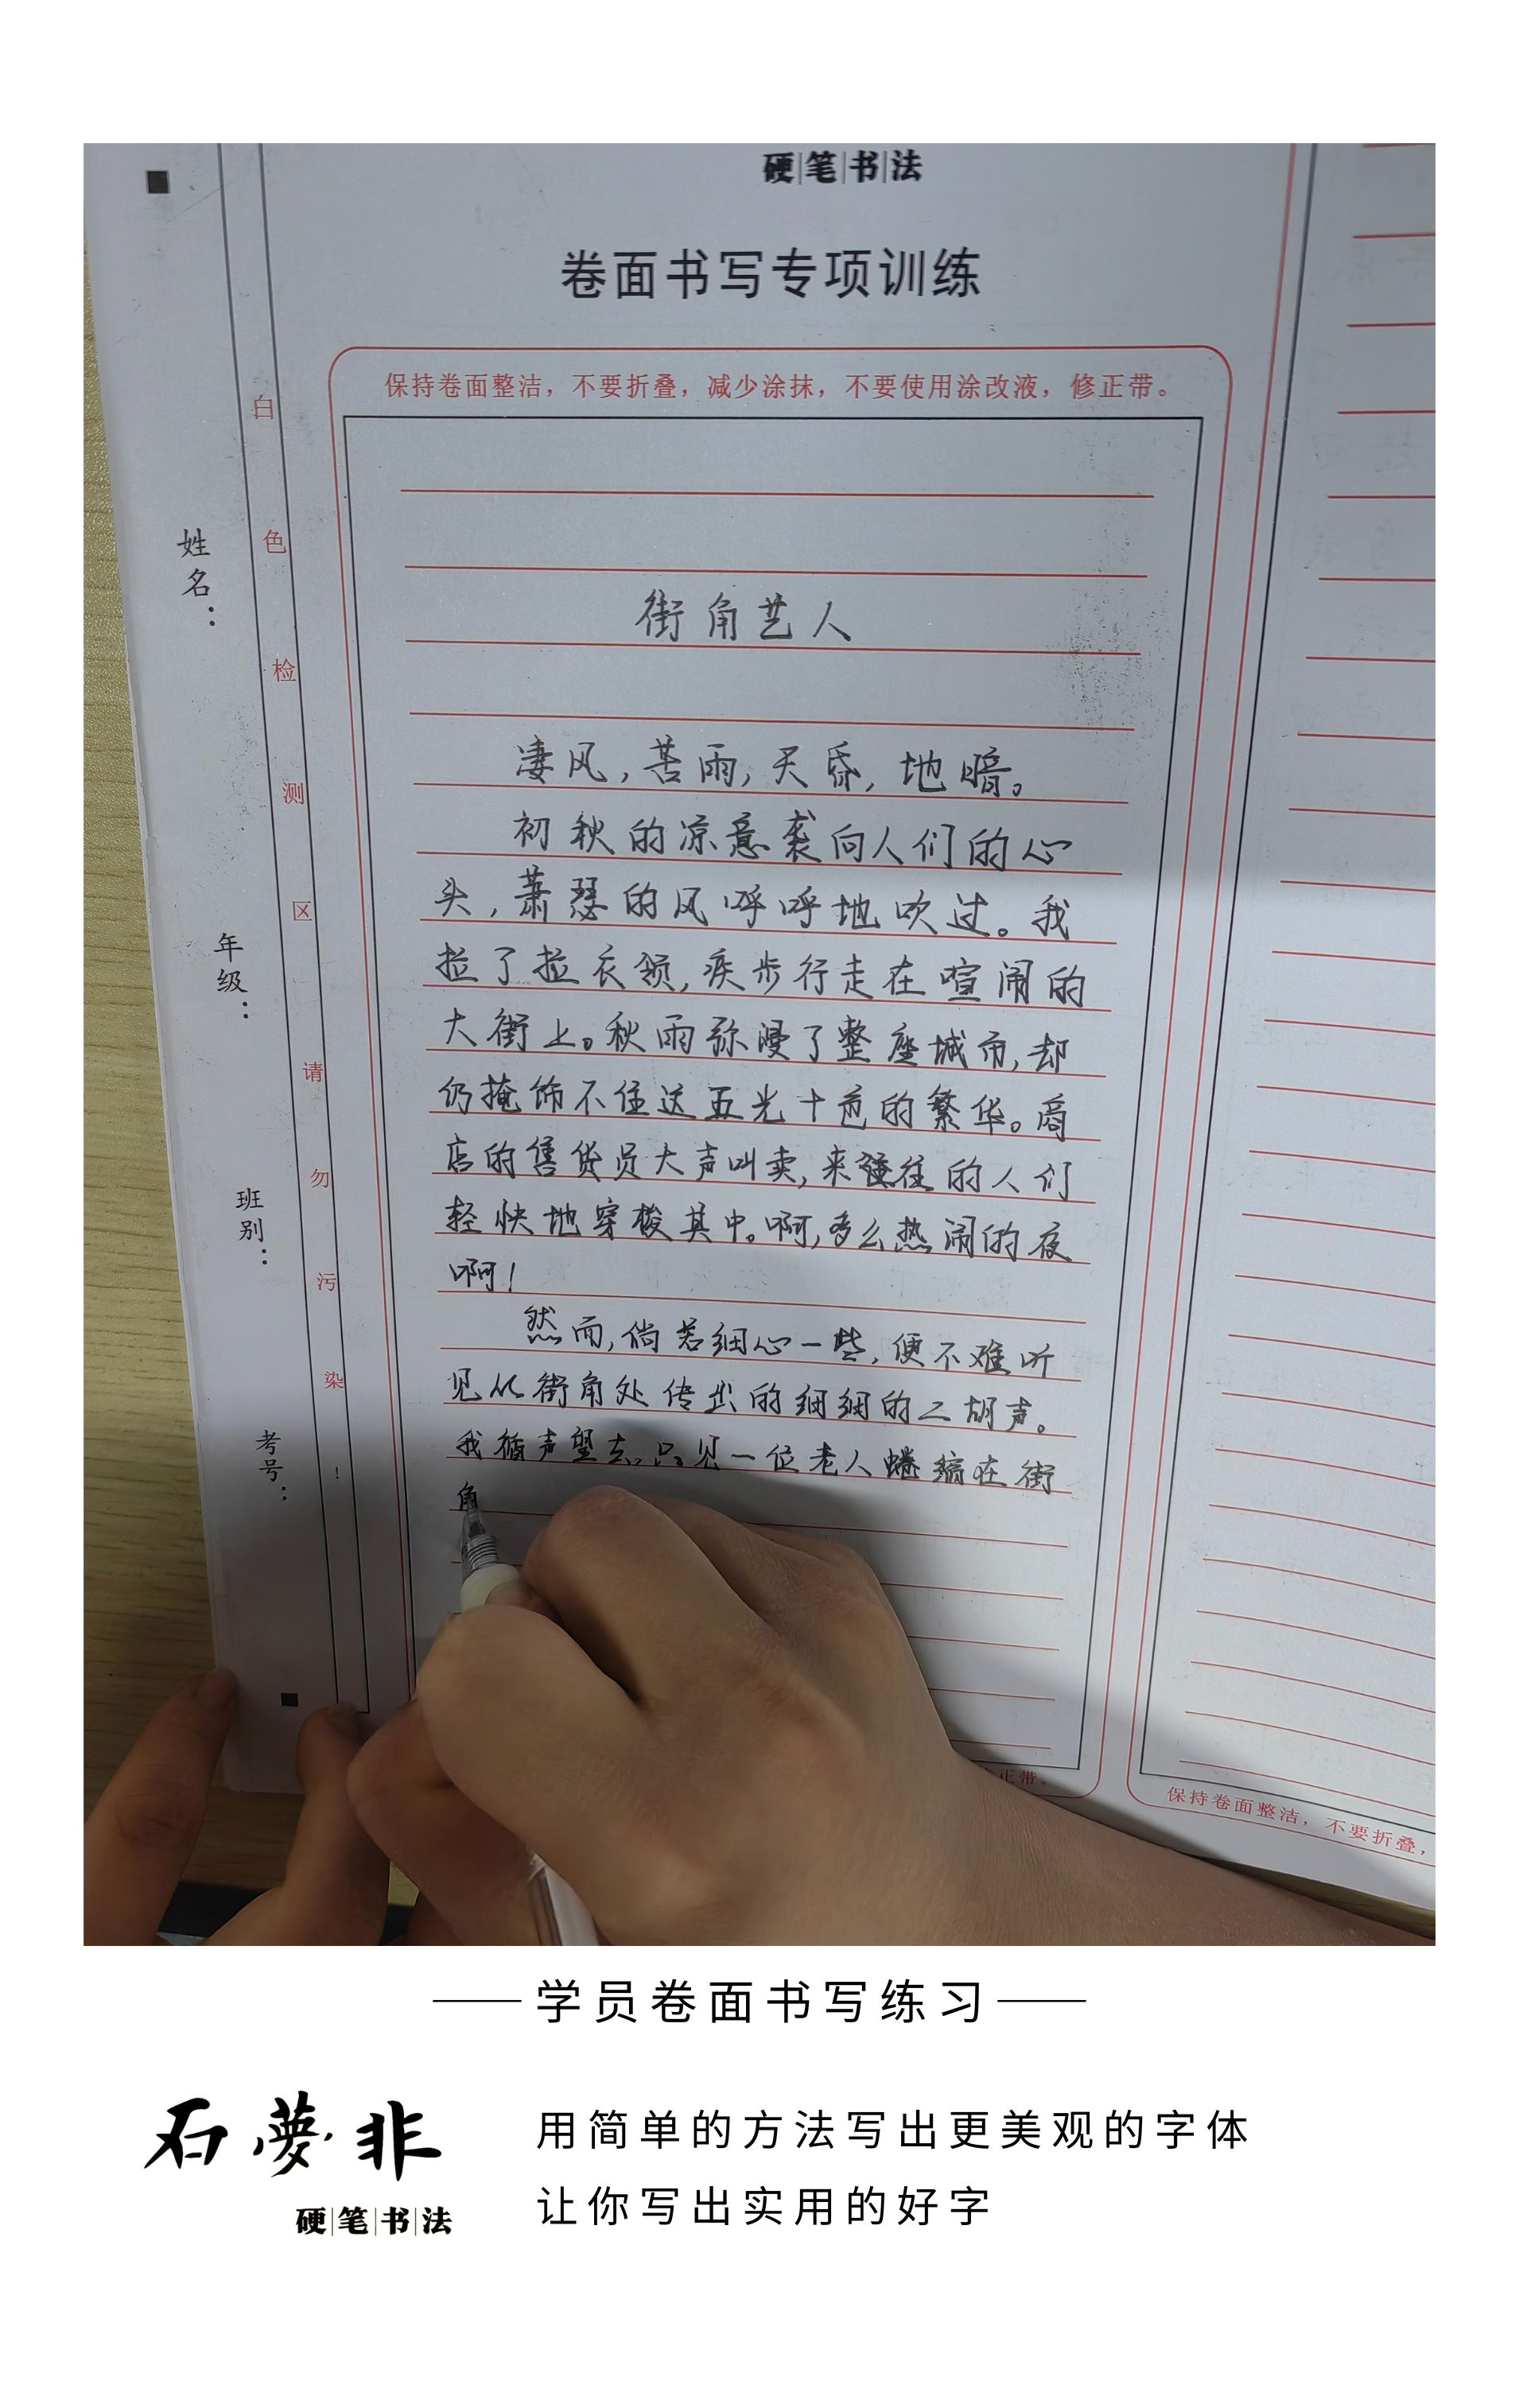 硬笔书法
卷面书写专项训练
保持卷面整洁，不要折叠，减少涂抹，不要使用涂改液，修正带。
白色检测区请勿污染！
姓名：
年级：
班别：
考号：
街角艺人
凄风，苦雨，天昏，地暗。
初秋的凉意袭向人们的心
头，萧瑟的风呼呼地吹过。我
拉了拉衣领，疾步行走在喧闹的
大街上。秋雨弥漫了整座城市，却
仍掩饰不住这五光十色的繁华。商
店的售货员大声叫卖，来往的人们
轻快地穿梭其中。啊，多么热闹的夜
啊！
然而，倘若细心一些，便不难听
见从街角处传出的细细的二胡声。
我循声望去，只见一位老人蜷缩在街
角
正带。
保持卷面整洁，不要折叠，
学员卷面书写练习
石夢非
硬笔书法
用简单的方法写出更美观的字体
让你写出实用的好字